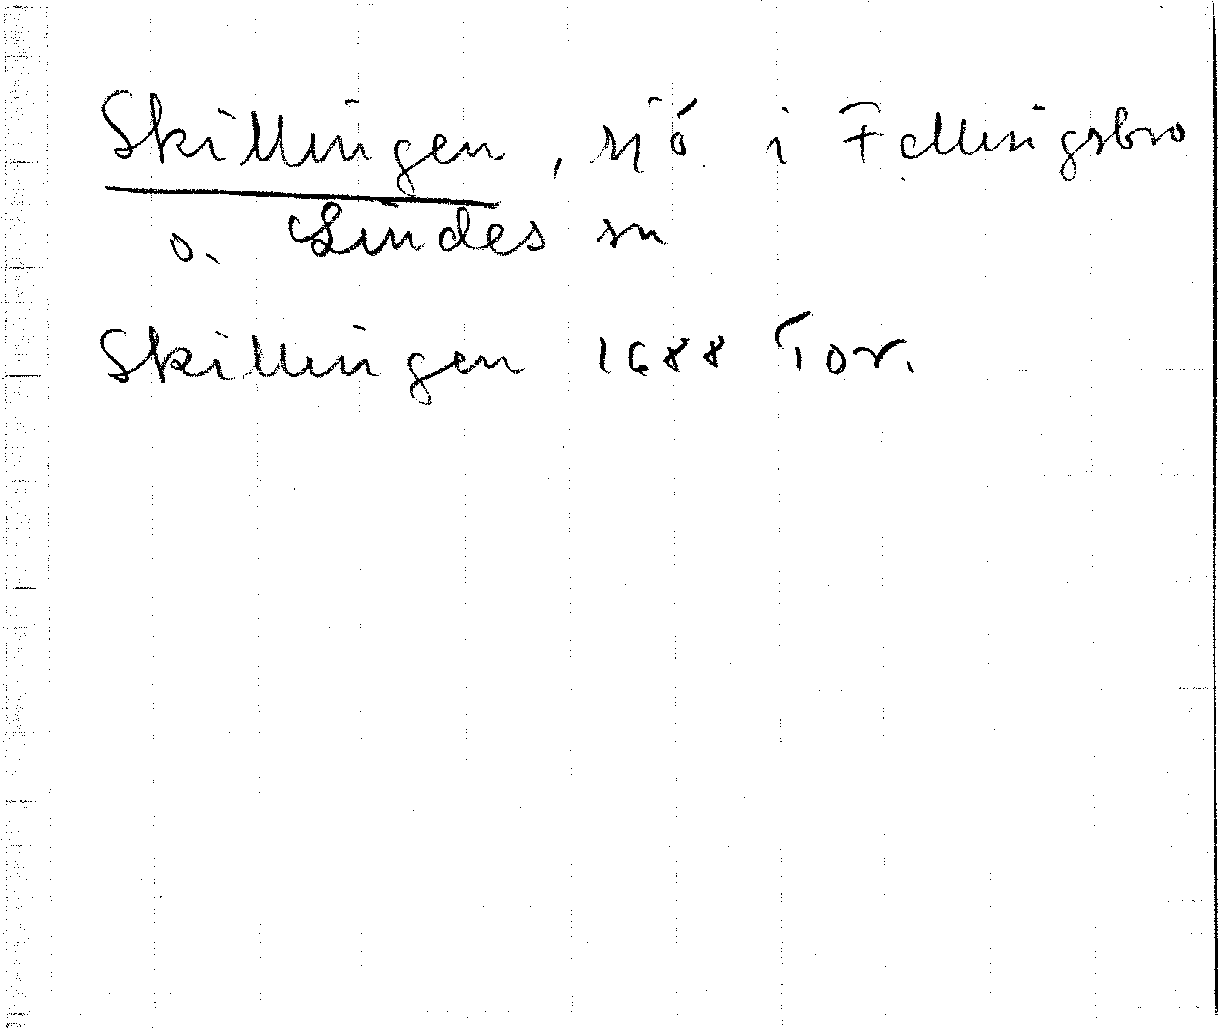 Skillingen, sjö i Fellingsbro
o. Lindes sn
Skillingen 1688 Tor.